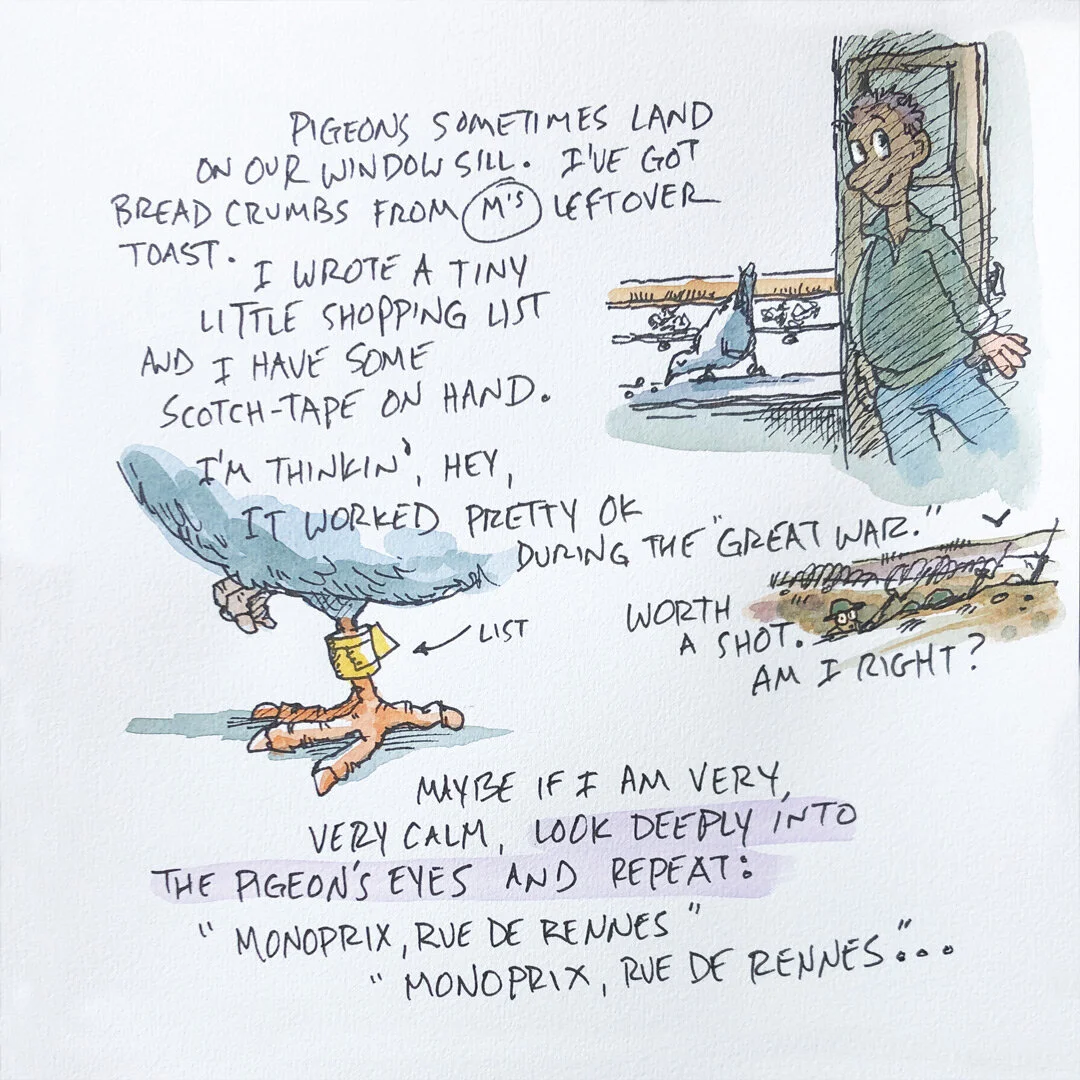 PIGEONS SOMETIMES LAND
ON OUR WINDOW SILL. I'VE GOT
BREAD CRUMBS FROM M'S LEFTOVER
TOAST.
I WROTE A TINY
LITTLE SHOPPING LIST
AND I HAVE SOME
SCOTCH-TAPE ON HAND.
I'M THINKIN', HEY,
IT WORKED PRETTY OK
DURING THE "GREAT WAR."
WORTH
A SHOT.
AM I RIGHT?
LIST
MAYBE IF I AM VERY,
VERY CALM, LOOK DEEPLY INTO
THE PIGEON'S EYES AND REPEAT:
"MONOPRIX, RUE DE RENNES"
"MONOPRIX, RUE DE RENNES"...